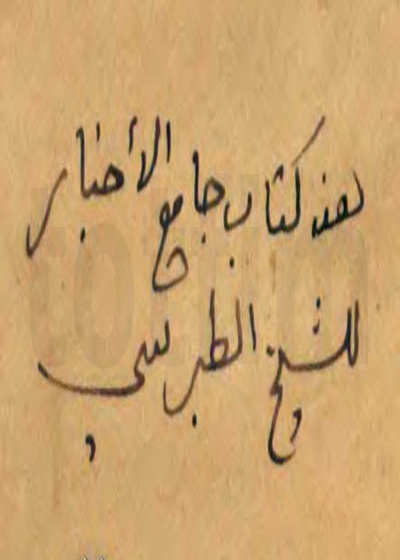 هذا كتاب جامع الأخبار
للشيخ الطبرسي